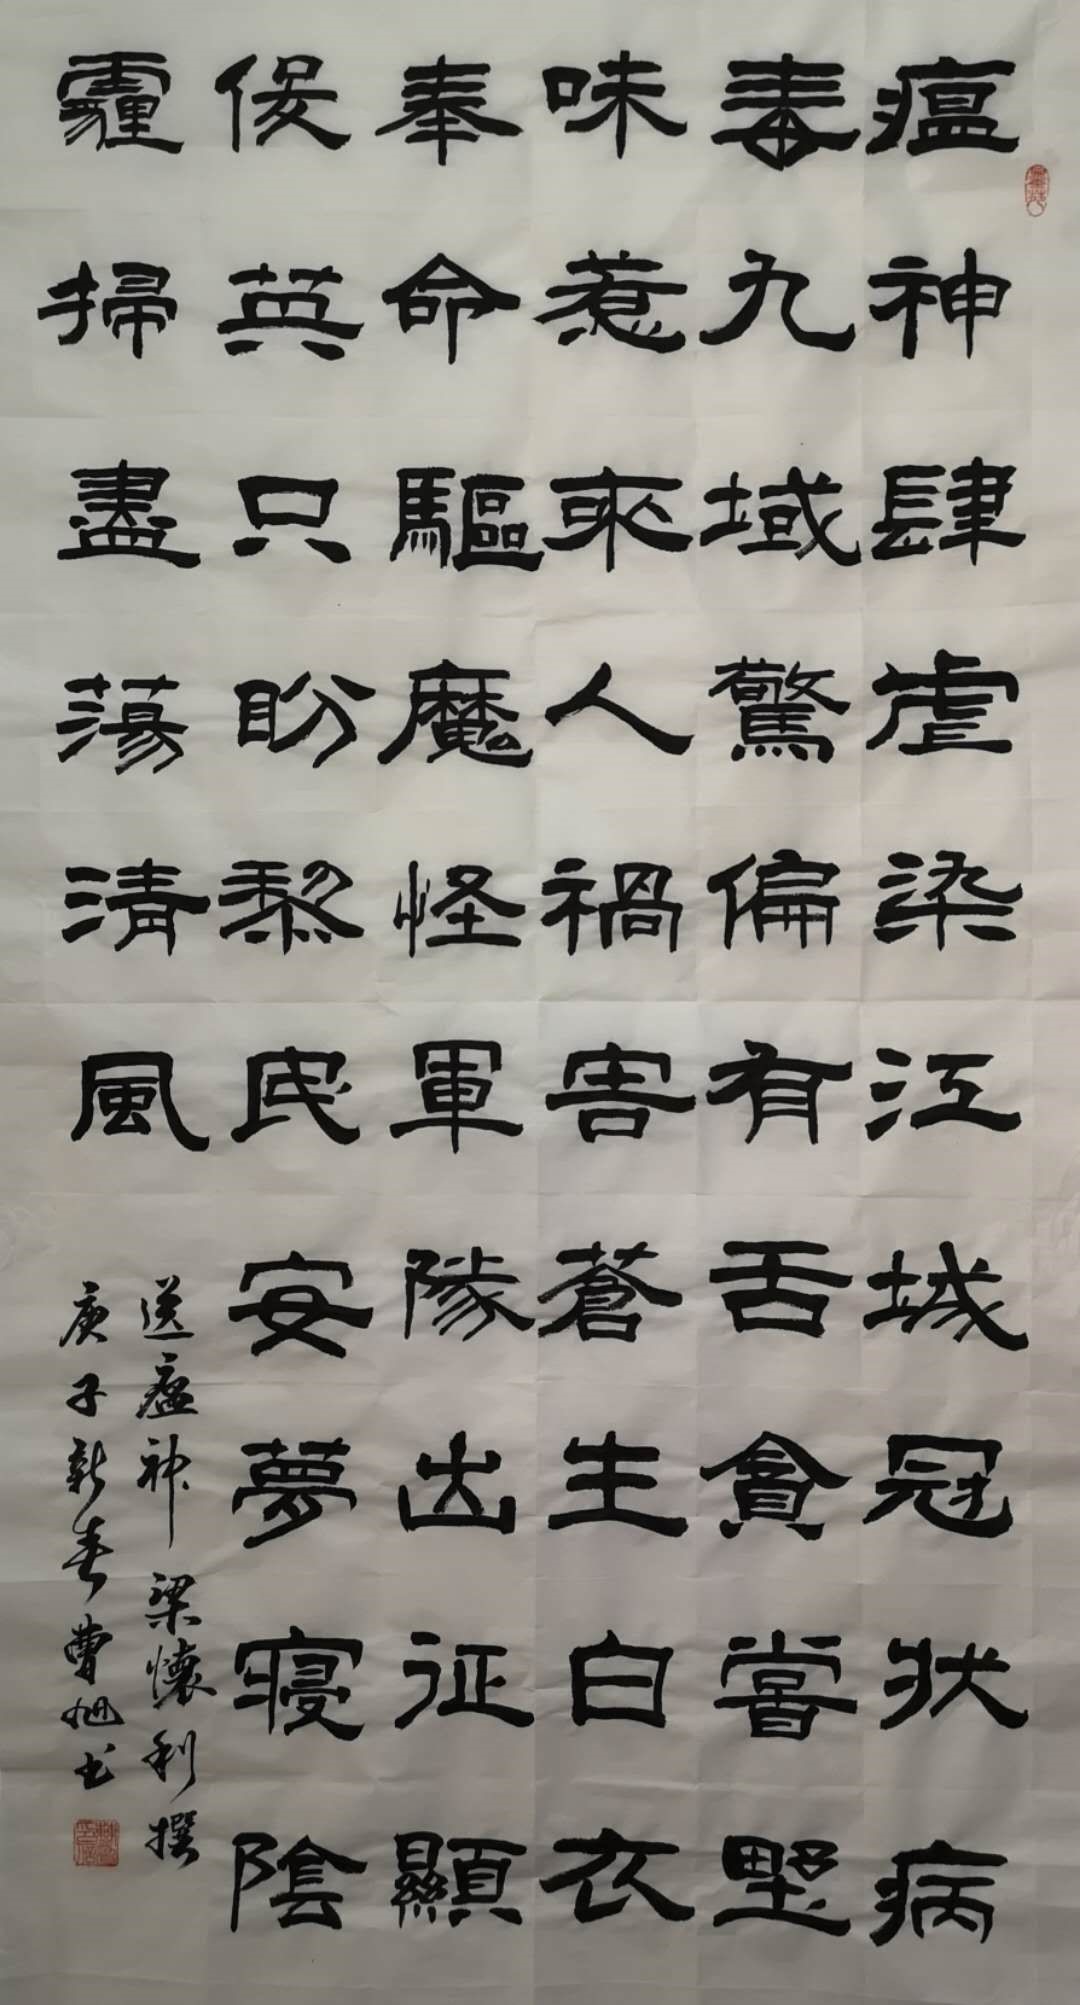 瘟神肆虐染江城冠狀病
毒九域驚偏有舌貪嘗野
味惹來人禍害蒼生白衣
奉命驅魔怪軍隊出征顯
俊英只盼黎民安夢寢陰
霾掃盡蕩清風
送瘟神 梁懷利撰
庚子新春曹旭书